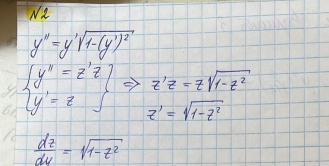 №2
y'' = y'√(1-(y')²)
{ y'' = z'z
y' = z } ⇒ z'z = z√(1-z²)
z' = √(1-z²)
dz/dy = √(1-z²)